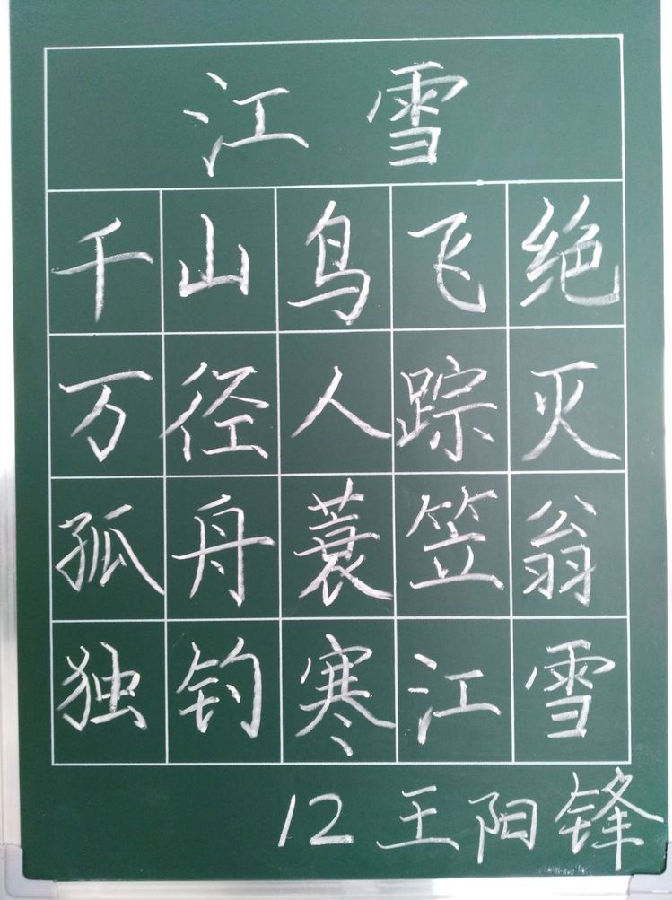 江雪
千山鸟飞绝
万径人踪灭
孤舟蓑笠翁
独钓寒江雪
12 王阳锋